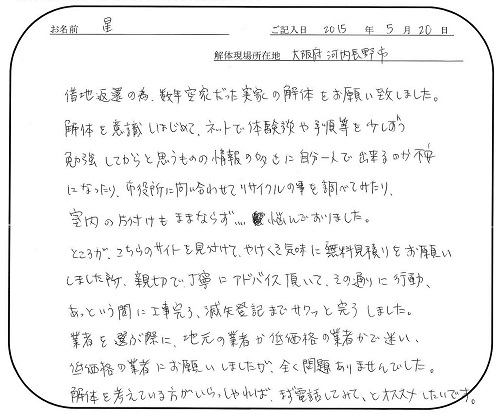 お名前 星 ご記入日 2015 年 5 月 20 日
解体現場所在地 大阪府河内長野市
借地返還の為、数年空家だった実家の解体をお願い致しました。
解体を意識しはじめて、ネットで体験談や手順等を少しずつ
勉強してからと思うものの情報の多さに自分一人で出来るのか不安
になったり、市役所に問い合わせてリサイクルの事を調べてみたり、
室内の片付けもままならず… 悩んでおりました。
ところが、こちらのサイトを見付けて、やけくそ気味に無料見積りをお願い
しました所、親切で丁寧にアドバイス頂いて、その通りに行動、
あっという間に工事完了、滅失登記までサクッと完了しました。
業者を選ぶ際に、地元の業者か低価格の業者かで迷い、
低価格の業者にお願いしましたが、全く問題ありませんでした。
解体を考えている方がいらっしゃれば、まず電話してみて、とオススメしたいです。